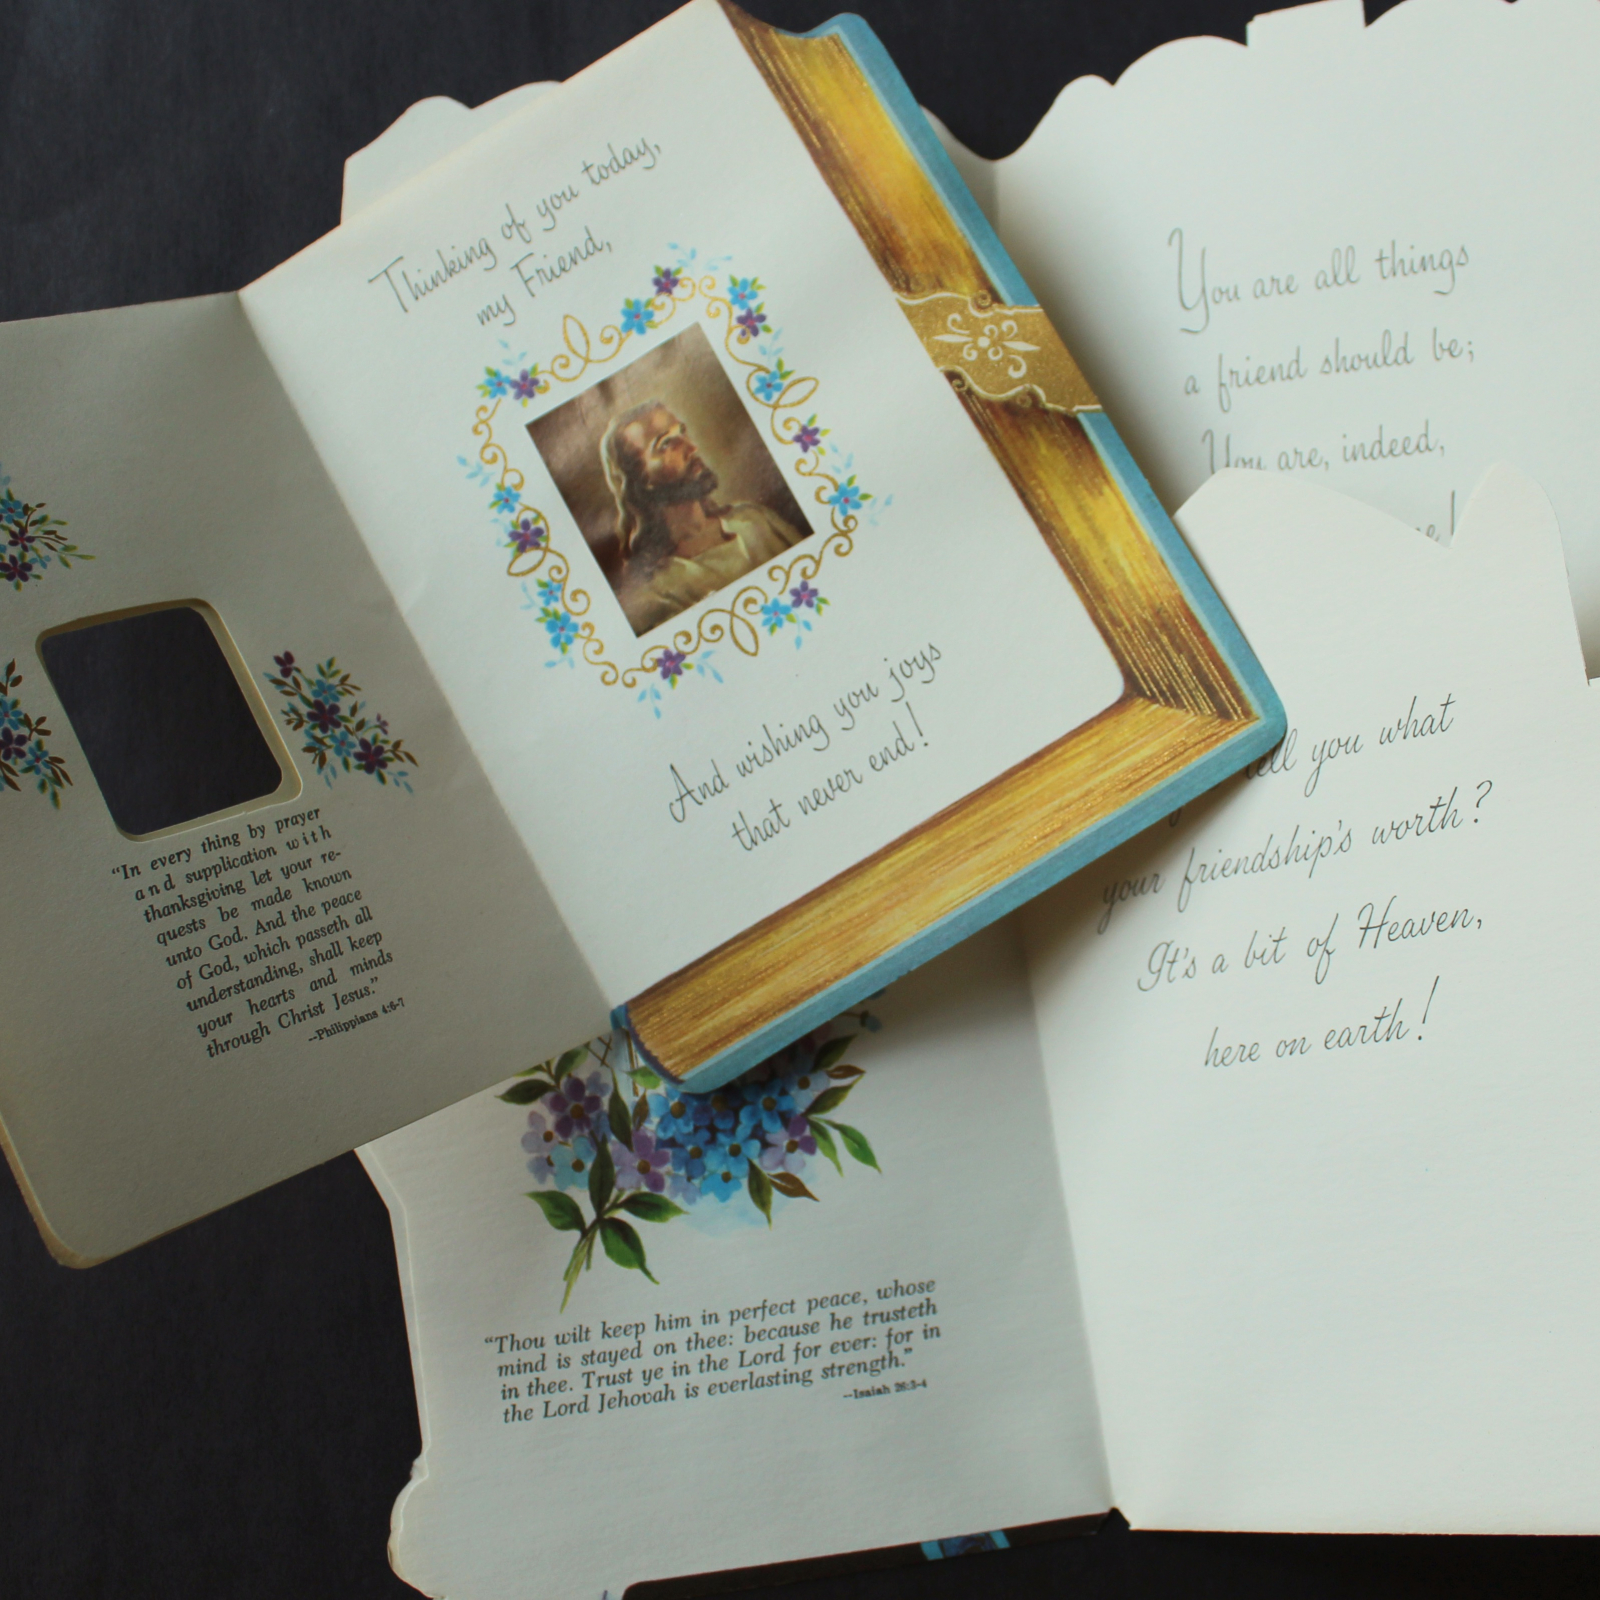 Thinking of you today,
my Friend,
And wishing you joys
that never end!
"In every thing by prayer
and supplication with
thanksgiving let your re-
quests be made known
unto God. And the peace
of God, which passeth all
understanding, shall keep
your hearts and minds
through Christ Jesus."
--Philippians 4:6-7
You are all things
a friend should be;
You are, indeed,
tell you what
your friendship's worth?
It's a bit of Heaven,
here on earth!
"Thou wilt keep him in perfect peace, whose
mind is stayed on thee: because he trusteth
in thee. Trust ye in the Lord for ever: for in
the Lord Jehovah is everlasting strength."
--Isaiah 26:3-4